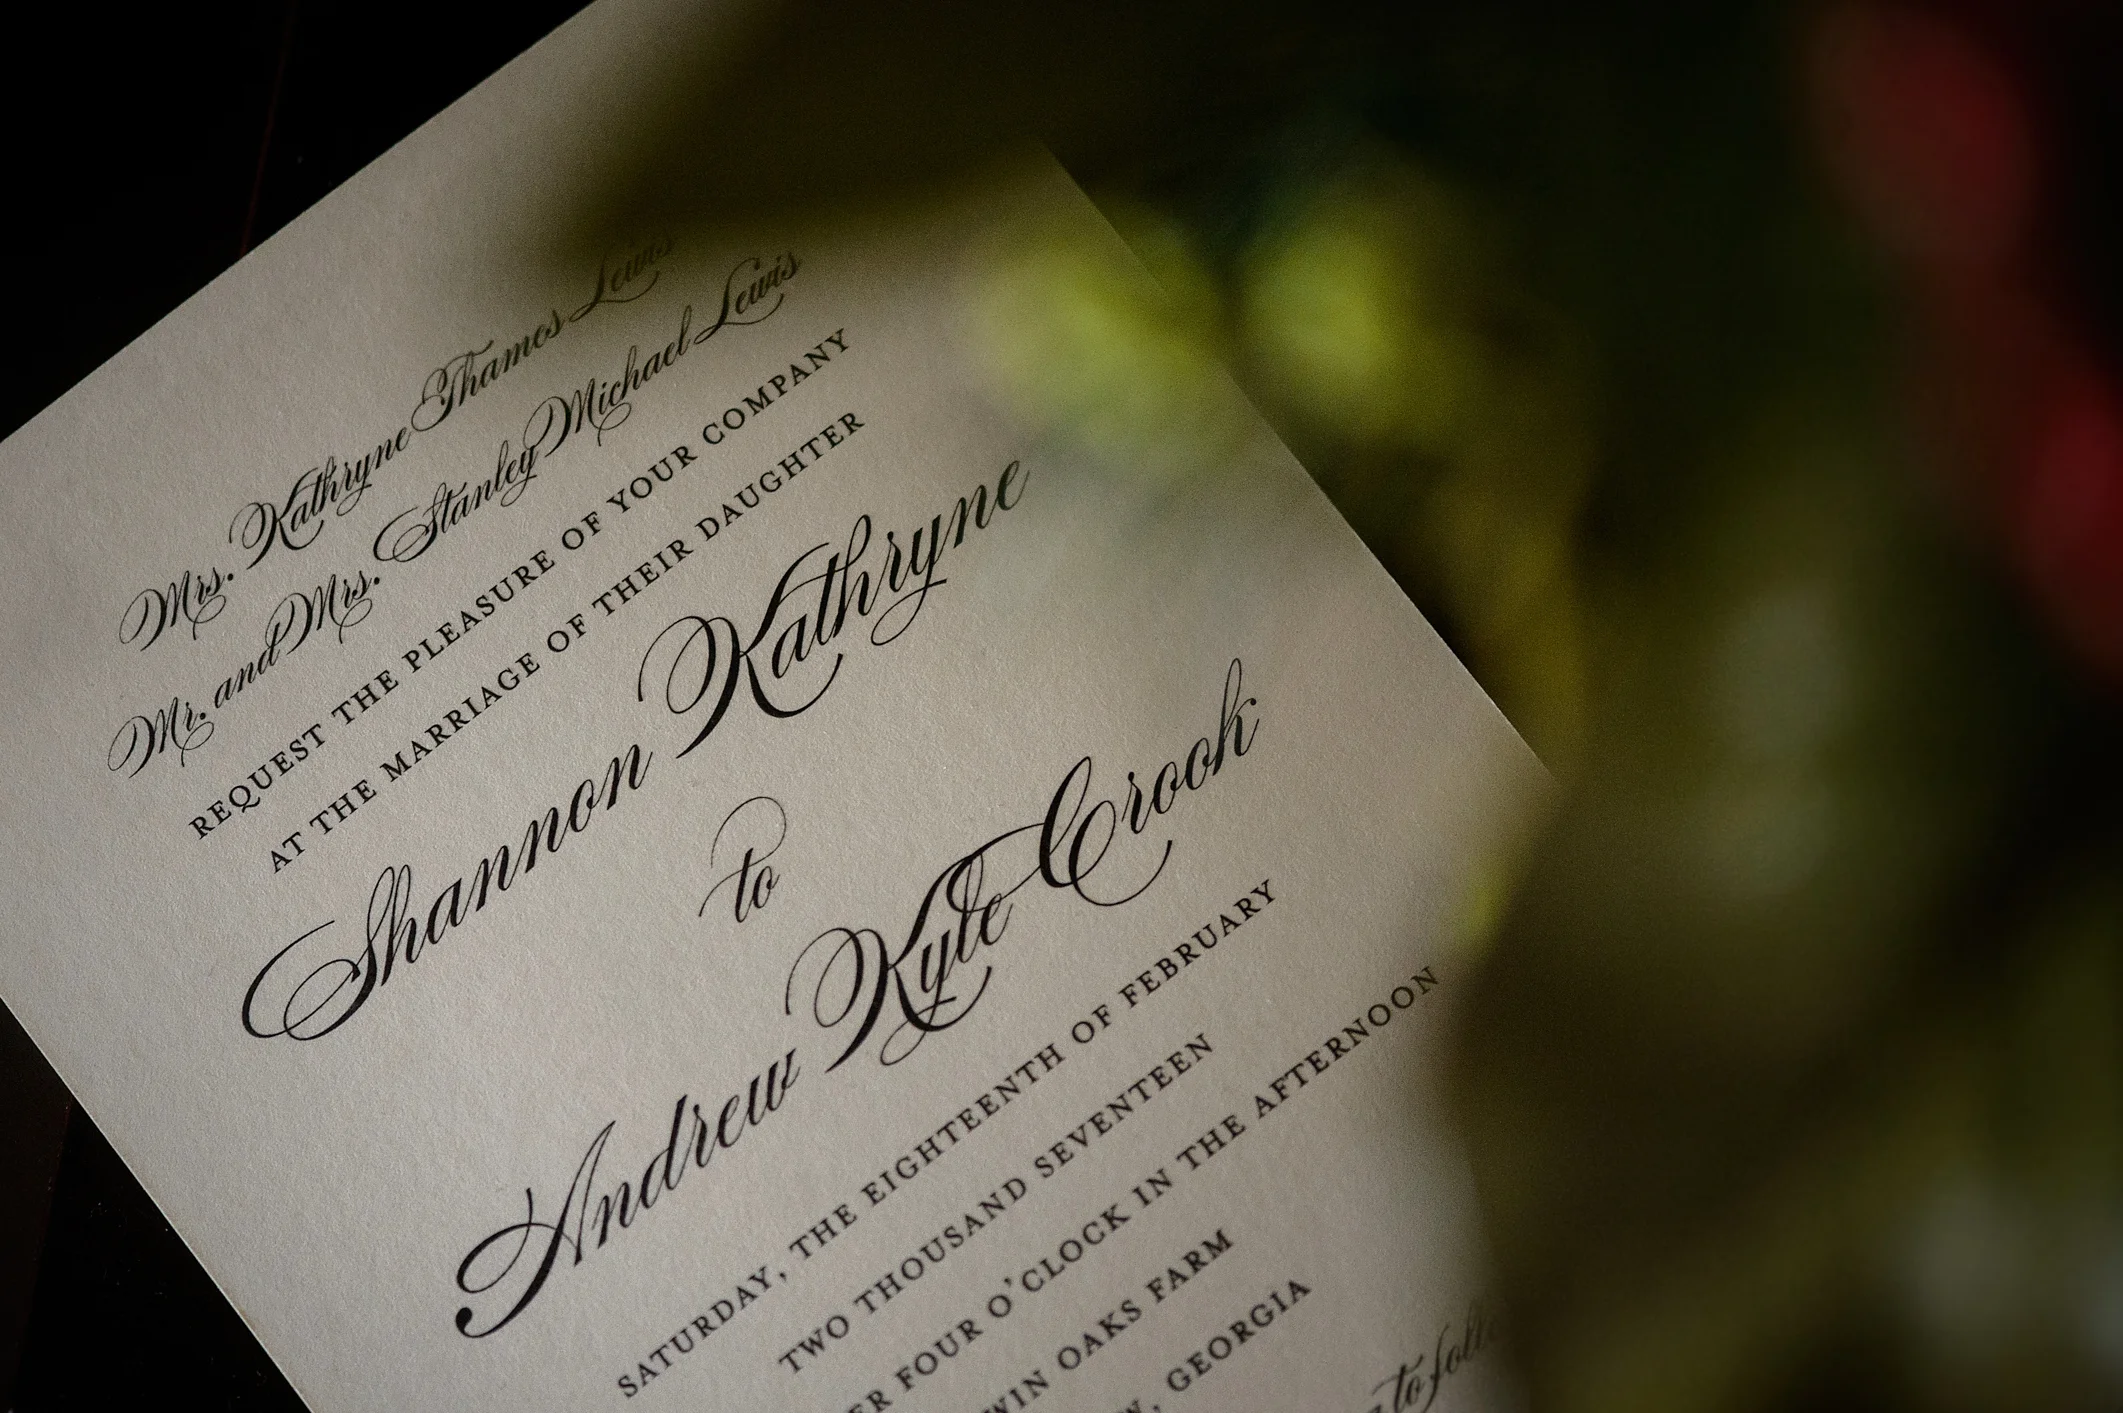 Mrs. Kathryne Thames Lewis
Mr. and Mrs. Stanley Michael Lewis
REQUEST THE PLEASURE OF YOUR COMPANY
AT THE MARRIAGE OF THEIR DAUGHTER
Shannon Kathryne
to
Andrew Kyle Crook
SATURDAY, THE EIGHTEENTH OF FEBRUARY
TWO THOUSAND SEVENTEEN
FOUR O'CLOCK IN THE AFTERNOON
OAKS FARM
GEORGIA
to